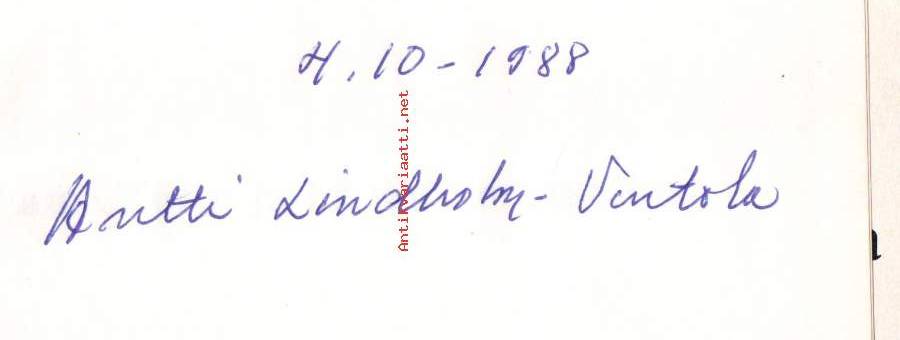 4.10-1988
Antikvariaatti.net
Antti Lindholm-Ventola